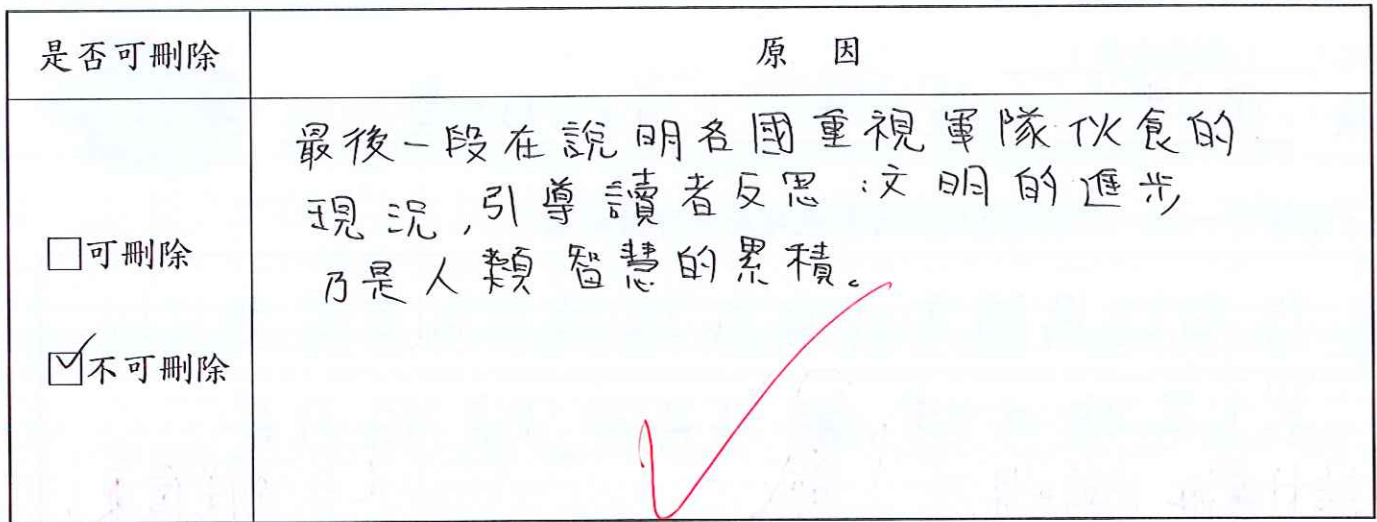 是否可刪除
原因
□可刪除
☑不可刪除
最後一段在說明各國重視軍隊伙食的
現況，引導讀者反思：文明的進步
乃是人類智慧的累積。